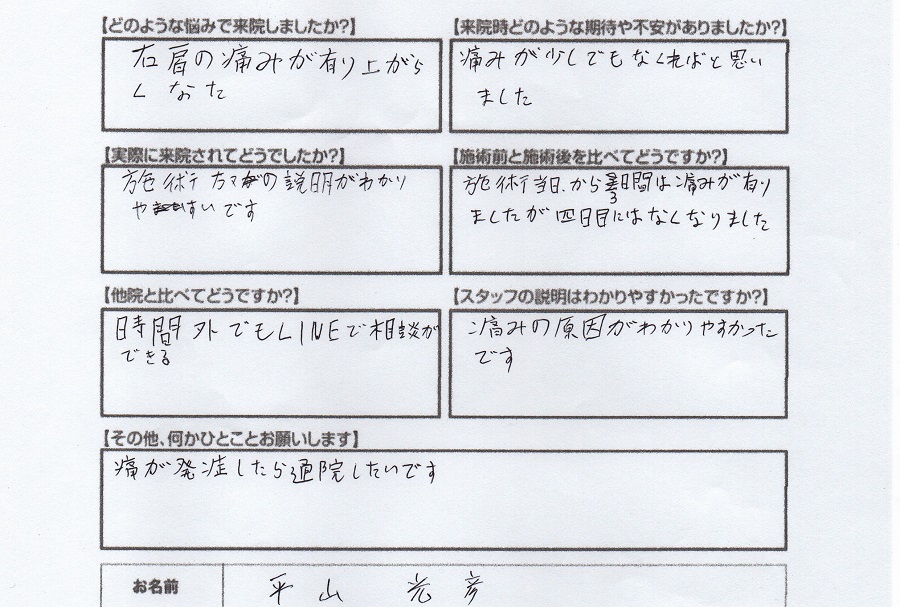 【どのような悩みで来院しましたか?】
右肩の痛みが有り上がら
くなた
【来院時どのような期待や不安がありましたか?】
痛みが少しでもなくればと思い
ました
【実際に来院されてどうでしたか?】
施術方の説明がわかり
やすいです
【施術前と施術後を比べてどうですか?】
施術当日から3日間は痛みが有り
ましたが四日目にはなくなりました
【他院と比べてどうですか?】
時間外でもLINEで相談が
できる
【スタッフの説明はわかりやすかったですか?】
痛みの原因がわかりやすかった
です
【その他、何かひとことお願いします】
痛が発症したら通院したいです
お名前
平山 光彦